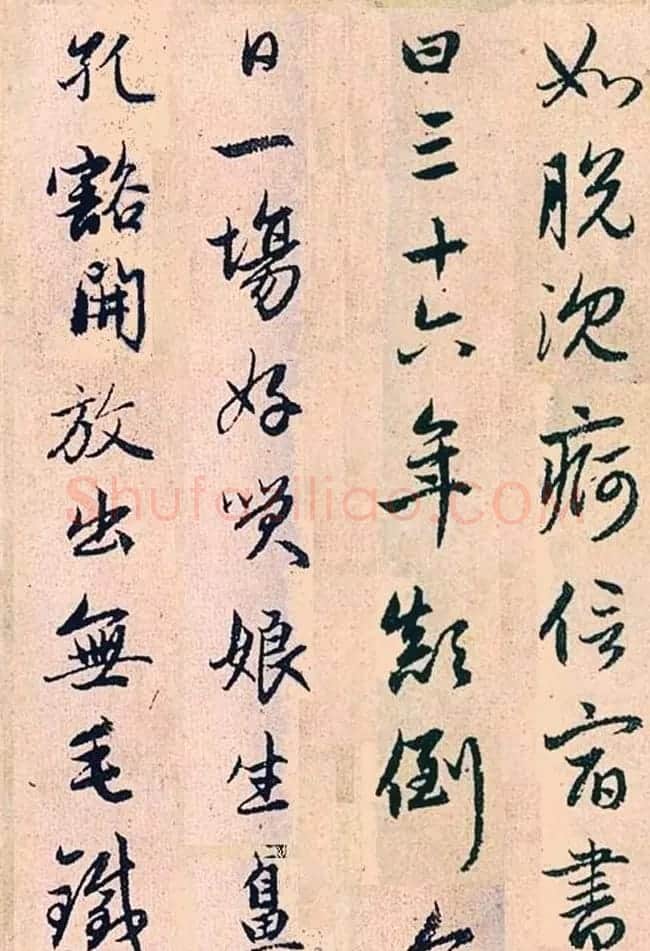 如脫沉痾信宿書
曰三十六年顛倒
日一場好笑娘生鼻
孔豁開放出無毛鐵